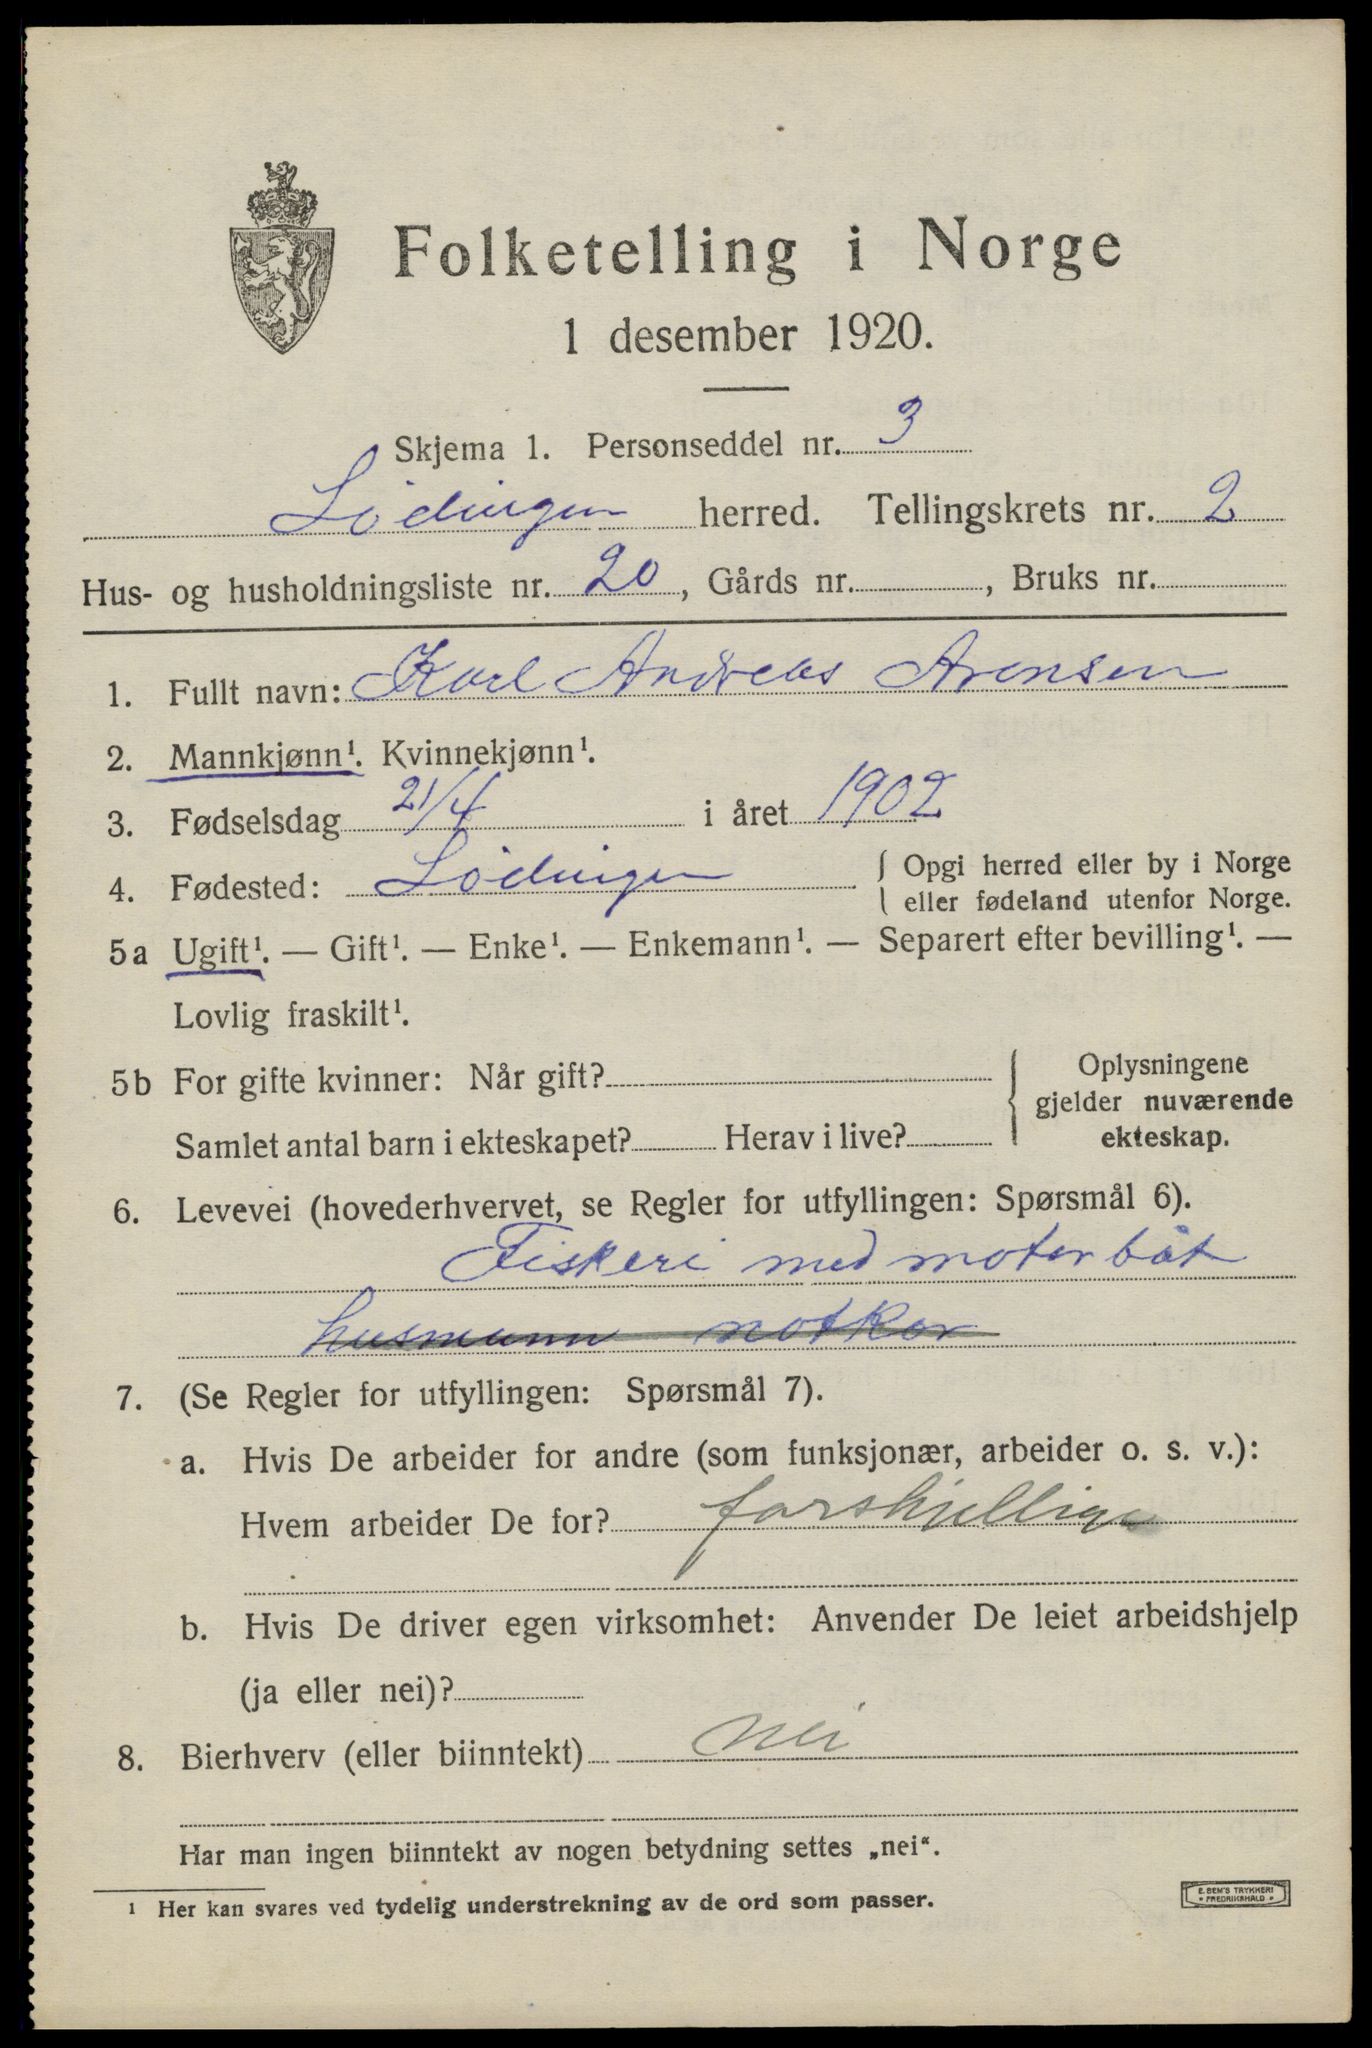 Folketelling i Norge
1 desember 1920.
Skjema 1. Personseddel nr. 3
Lödingen herred. Tellingskrets nr. 2
Hus- og husholdningsliste nr. 20, Gårds nr. , Bruks nr.
1. Fullt navn: Karl Andreas Arensen
2. Mannkjønn¹. Kvinnekjønn¹.
3. Fødselsdag 21/4 i året 1902
4. Fødested: Lödingen { Opgi herred eller by i Norge
eller fødeland utenfor Norge.
5a Ugift¹. — Gift¹. — Enke¹. — Enkemann¹. — Separert efter bevilling¹. —
Lovlig fraskilt¹.
5b For gifte kvinner: Når gift? { Oplysningene
gjelder nuværende
Samlet antal barn i ekteskapet? Herav i live? ekteskap.
6. Levevei (hovederhvervet, se Regler for utfyllingen: Spørsmål 6).
Fiskeri med motor båt
husmann notkar
7. (Se Regler for utfyllingen: Spørsmål 7).
a. Hvis De arbeider for andre (som funksjonær, arbeider o. s. v.):
Hvem arbeider De for? forskjellige
b. Hvis De driver egen virksomhet: Anvender De leiet arbeidshjelp
(ja eller nei)?
8. Bierhverv (eller biinntekt) nei
Har man ingen biinntekt av nogen betydning settes „nei“.
¹ Her kan svares ved tydelig understrekning av de ord som passer.
E. SEM'S TRYKKERI
• FREDRIKSHALD •